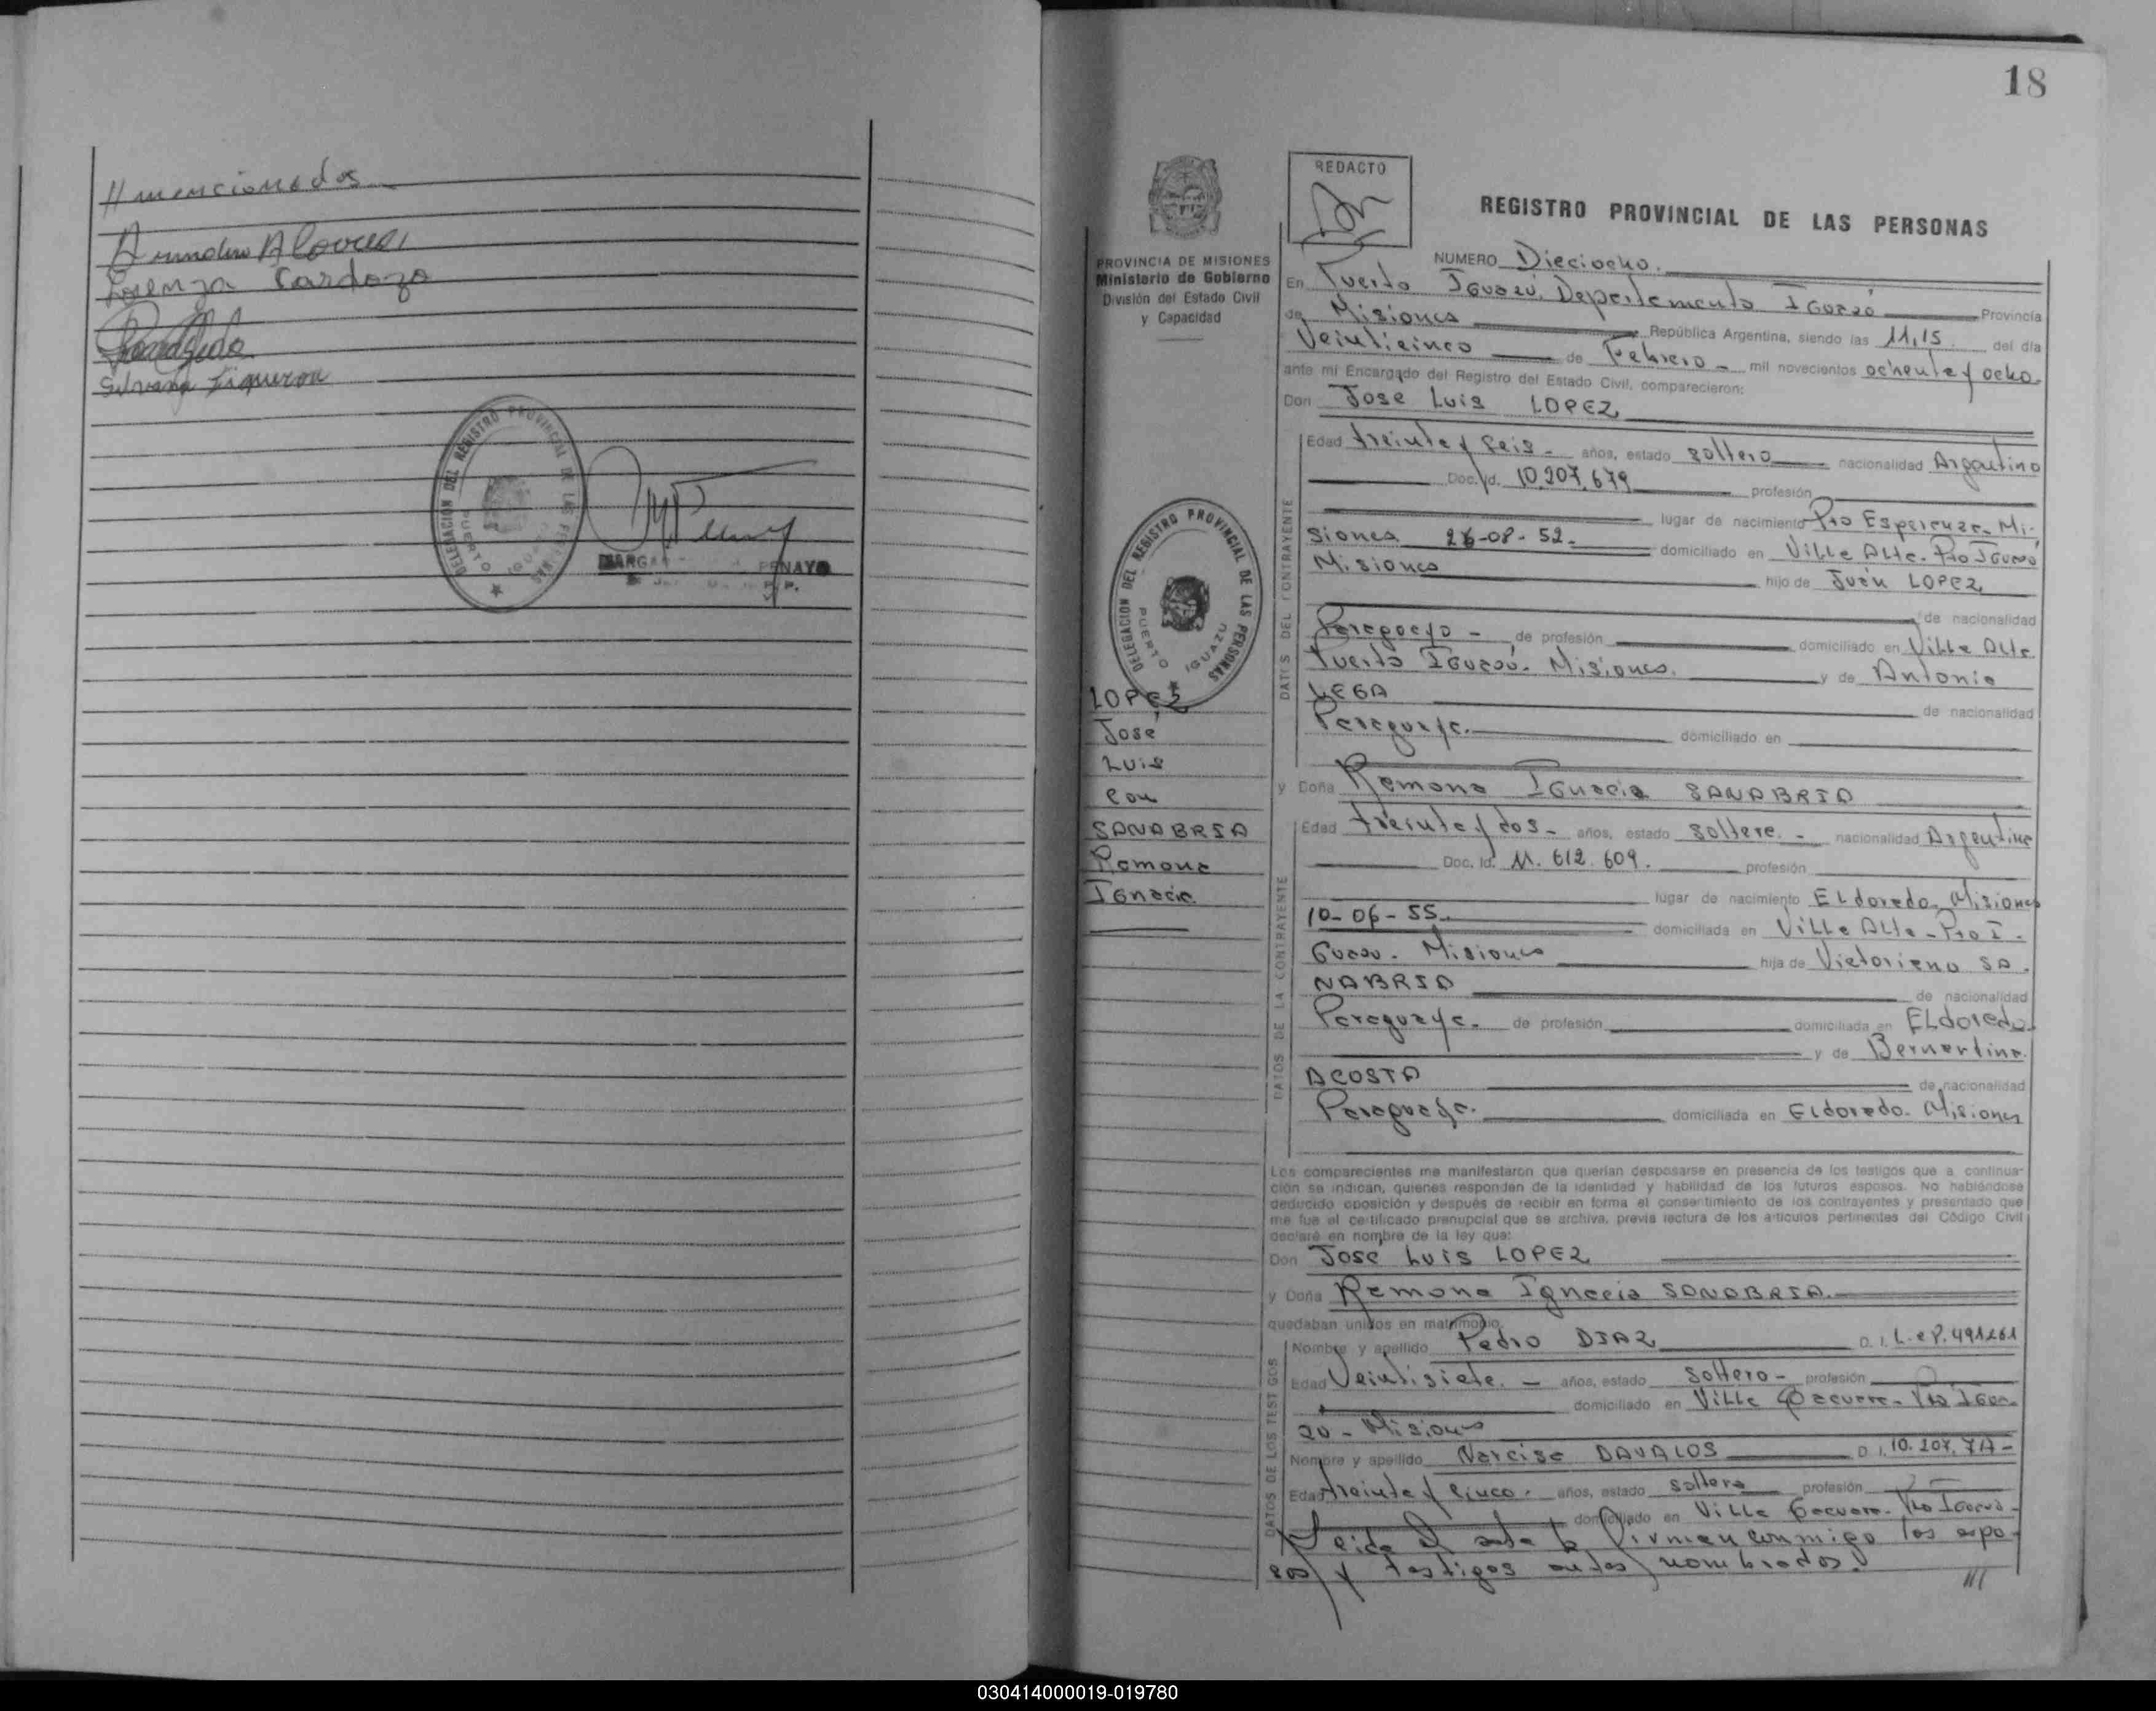 // mencionados
Lorenza Cardozo
Silvana Figueron
DELEGACION DEL REGISTRO PROVINCIAL DE LAS PERSONAS
PUERTO IGUAZU
18
REDACTO
REGISTRO PROVINCIAL DE LAS PERSONAS
PROVINCIA DE MISIONES
Ministerio de Gobierno
División del Estado Civil
y Capacidad
DELEGACION DEL REGISTRO PROVINCIAL DE LAS PERSONAS
PUERTO IGUAZU
LOPEZ
José
Luis
con
SANABRIA
Ramona
Ignacia
NUMERO Dieciocho.
En Puerto Iguazú, Departamento Iguazú Provincia
de Misiones República Argentina, siendo las 11,15 del día
Veinticinco de Febrero - mil novecientos ochenta y ocho.
ante mi Encargado del Registro del Estado Civil, comparecieron:
Don Jose Luis LOPEZ
DATOS DEL CONTRAYENTE
Edad treinta y seis - años, estado soltero nacionalidad Argentino
Doc. Id. 10.207.679 profesión
lugar de nacimiento Pto Esperanza - Mi-
siones 26-08-52. domiciliado en Villa Alta - Pto Iguazú
Misiones hijo de Juan LOPEZ
de nacionalidad
Paraguayo - de profesión domiciliado en Villa Alta
Puerto Iguazú. Misiones. y de Antonia
VEGA de nacionalidad
Paraguaya. domiciliado en
y Doña Ramona Ignacia SANABRIA
DATOS DE LA CONTRAYENTE
Edad treinta y dos - años, estado soltera. - nacionalidad Argentina
Doc. Id. 11.612.609. profesión
lugar de nacimiento Eldorado, Misiones
10-06-55. domiciliada en Villa Alta - Pto I-
Guazu. Misiones hija de Victoriano SA-
NABRIA de nacionalidad
Paraguaya. de profesión domiciliada en Eldorado
y de Bernartina
ACOSTA de nacionalidad
Paraguaya. domiciliada en Eldorado. Misiones
Los comparecientes me manifestaron que querían desposarse en presencia de los testigos que a continua-
ción se indican, quienes responden de la identidad y habilidad de los futuros esposos. No habiéndose
deducido oposición y después de recibir en forma el consentimiento de los contrayentes y presentado que
me fue el certificado prenupcial que se archiva, previa lectura de los artículos pertinentes del Código Civil
declaré en nombre de la ley que:
Don Jose Luis LOPEZ
y Doña Ramona Ignacia SANABRIA.
quedaban unidos en matrimonio.
DATOS DE LOS TESTIGOS
Nombre y apellido Pedro DIAZ D. I. 491261
Edad Veintisiete. - años, estado Soltero - profesión
domiciliado en Villa Pto Igua-
zu - Misiones
Nombre y apellido Narcisa DAVALOS D. I. 10.207.
Edad treinta y cinco. años, estado soltera profesión
domiciliado en Villa Pto Iguazu-
Leida el acta la firman conmigo los espo-
sos y testigos antes nombrados.
///
030414000019-019780